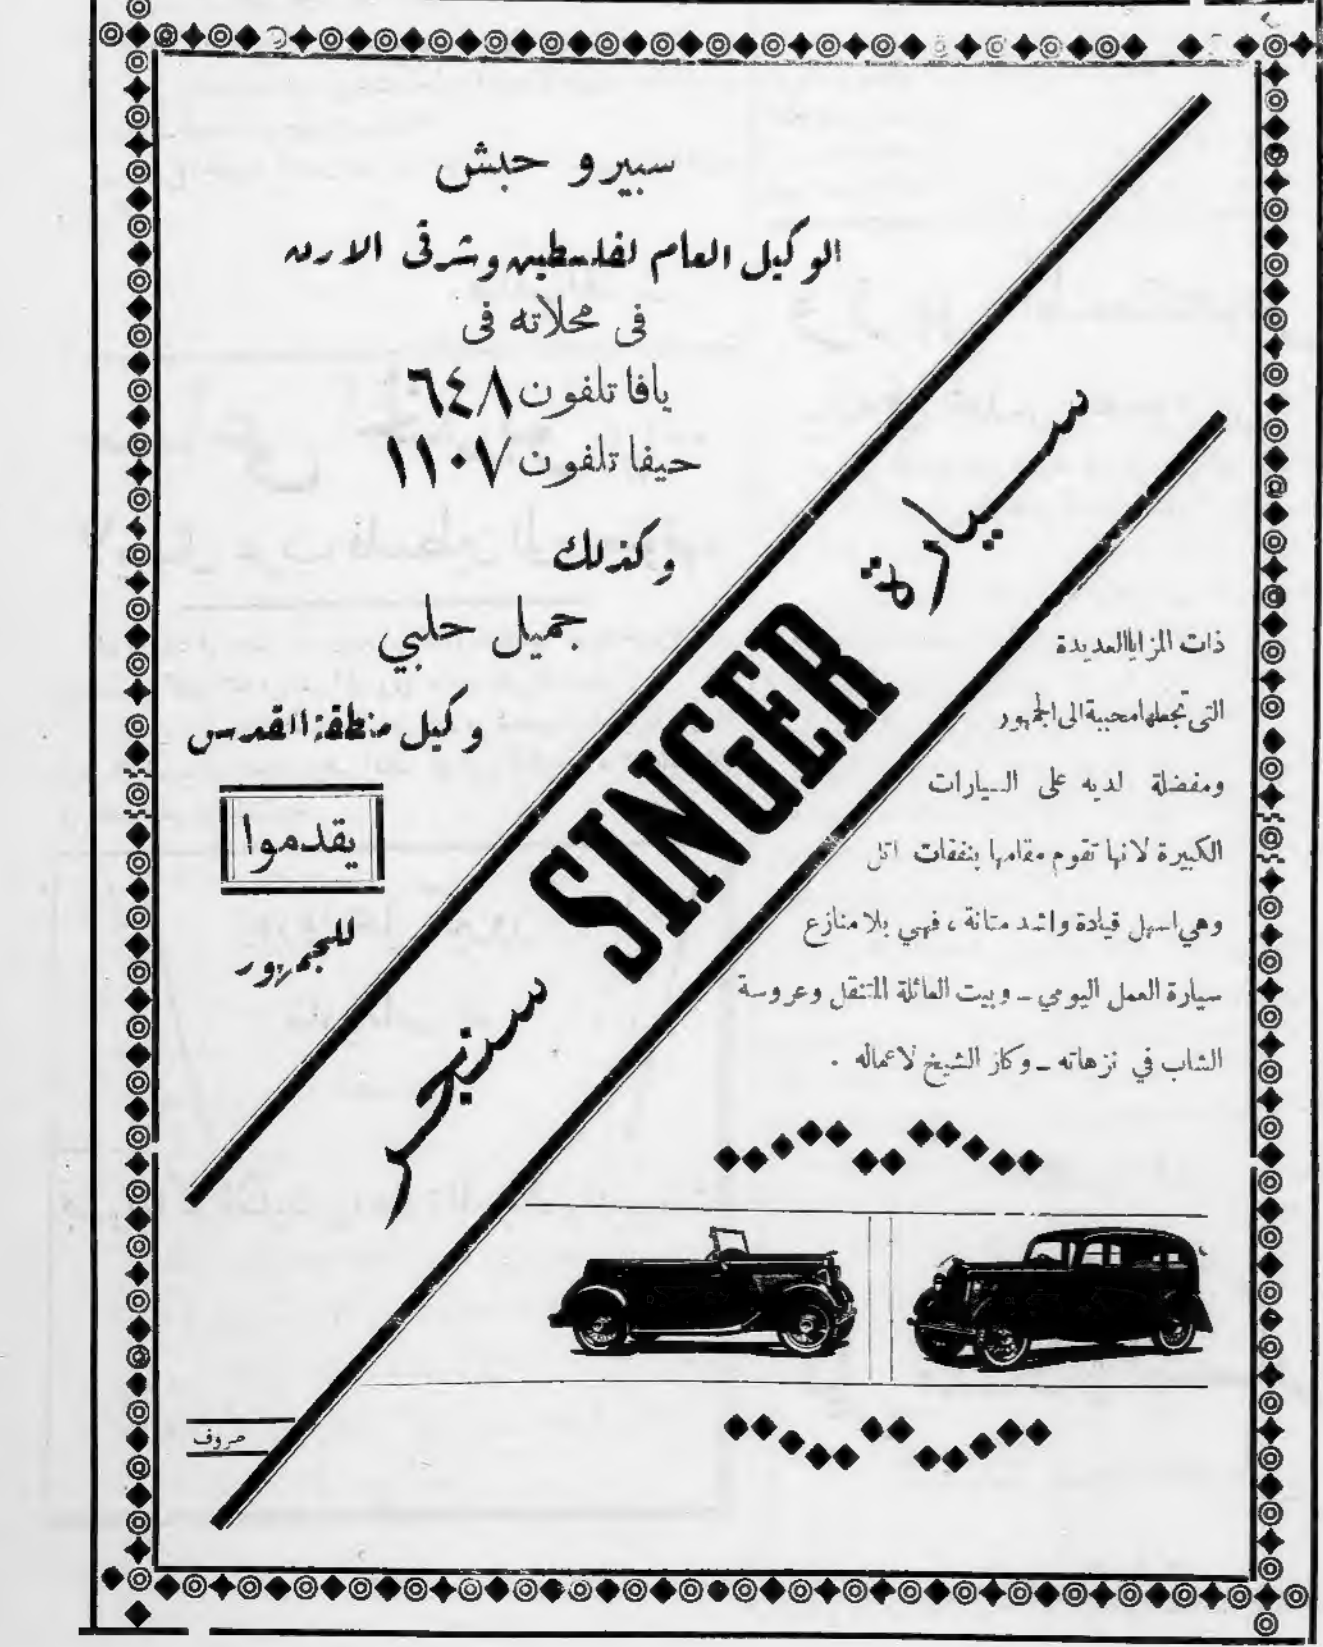 سبيرو حبش
الوكيل العام لفلسطين وشرقى الاردن
فى محلاته فى
يافا تلفون ٦٤٨
حيفا تلفون ١١٠٧
وكذلك
جميل حلبي
وكيل منطقة القدس
يقدموا
للجمهور
سيارة
SINGER
سنجر
ذات المزايا العديدة
التى تجعلها محببة الى الجمهور
ومفضلة لديه على السيارات
الكبيرة لانها تقوم مقامها بنفقات اقل
وهي اسهل قيادة واشد متانة ، فهي بلا منازع
سيارة العمل اليومي - وبيت العائلة المتنقل وعروسة
الشاب في نزهاته - وكاز الشيخ لاعماله .